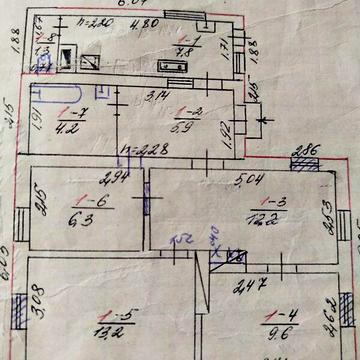 6.07
h=2.20
4.80
1.88
1.67
1-8
1.3
1-1
7.8
1.71
1.88
2.15
2.15
3.14
1.91
1-7
4.2
1-2
5.9
1.92
h=2.28
2.86
2.94
5.04
2.15
1-6
6.3
1-3
12.2
2.53
1.52
2.47
3.08
1-5
13.2
1-4
9.6
2.62